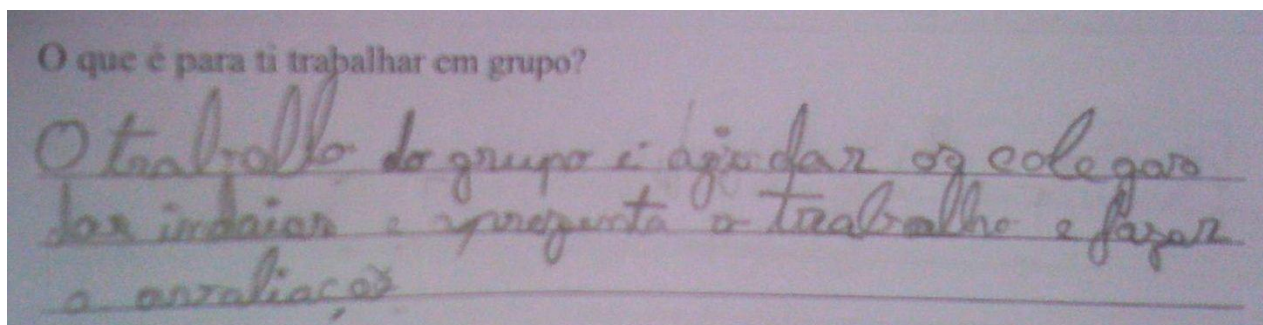 O que é para ti trabalhar em grupo?
O traballo do grupo é ajudar os colegas
dar indaias e aprezenta o trabalho e fazer
a avaliaçao